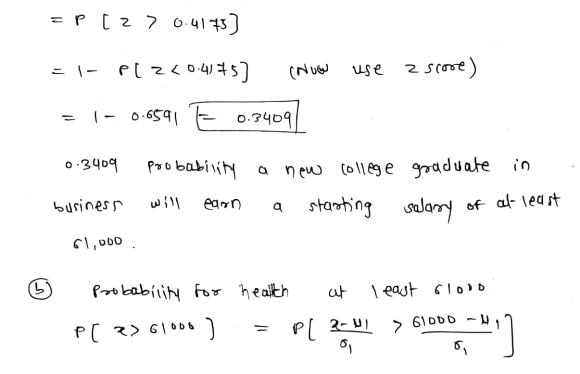 = P [ z > 0.4175]
= 1- P[ z < 0.4175] (Now use z score)
= 1 - 0.6591 = 0.3409
0.3409 Probability a new college graduate in
business will earn a starting salary of at-least
61,000 .
(b) Probability for health at least 61000
P[ x > 61000 ] = P[ (x-μ1)/σ1 > (61000 - μ1)/σ1 ]